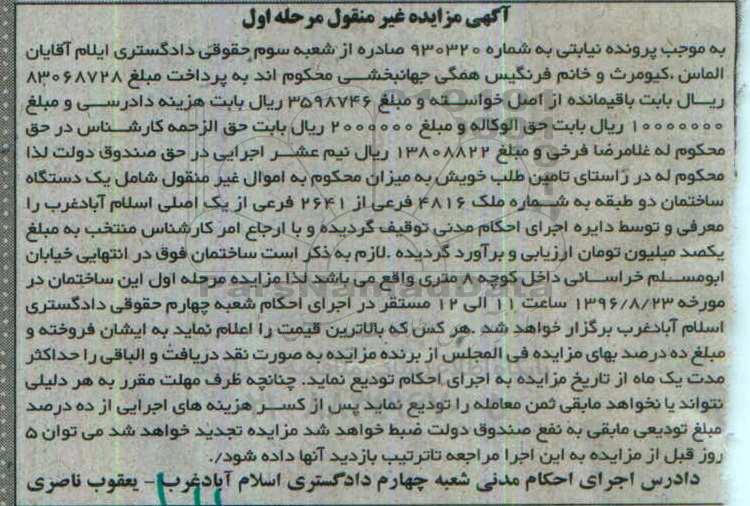 آگهی مزایده غیر منقول مرحله اول
به موجب پرونده نیابتی به شماره ۹۳۰۳۲۰ صادره از شعبه سوم حقوقی دادگستری ایلام آقایان
الماس ،کیومرث و خانم فرنگیس همگی جهانبخشی محکوم اند به پرداخت مبلغ ۸۳۰۶۸۷۲۸
ریال بابت باقیمانده از اصل خواسته و مبلغ ۳۵۹۸۷۴۶ ریال بابت هزینه دادرسی و مبلغ
۱۰۰۰۰۰۰۰ ریال بابت حق الوکاله و مبلغ ۲۰۰۰۰۰۰ ریال بابت حق الزحمه کارشناس در حق
محکوم له غلامرضا فرخی و مبلغ ۱۳۸۰۸۸۲۲ ریال نیم عشر اجرایی در حق صندوق دولت لذا
محکوم له در راستای تامین طلب خویش به میزان محکوم به اموال غیر منقول شامل یک دستگاه
ساختمان دو طبقه به شماره ملک ۴۸۱۶ فرعی از ۲۶۴۱ فرعی از یک اصلی اسلام آبادغرب را
معرفی و توسط دایره اجرای احکام مدنی توقیف گردیده و با ارجاع امر کارشناس منتخب به مبلغ
یکصد میلیون تومان ارزیابی و برآورد گردیده .لازم به ذکر است ساختمان فوق در انتهایی خیابان
ابومسلم خراسانی داخل کوچه ۸ متری واقع می باشد لذا مزایده مرحله اول این ساختمان در
مورخه ۱۳۹۶/۸/۲۳ ساعت ۱۱ الی ۱۲ مستقر در اجرای احکام شعبه چهارم حقوقی دادگستری
اسلام آبادغرب برگزار خواهد شد .هر کس که بالاترین قیمت را اعلام نماید به ایشان فروخته و
مبلغ ده درصد بهای مزایده فی المجلس از برنده مزایده به صورت نقد دریافت و الباقی را حداکثر
مدت یک ماه از تاریخ مزایده به اجرای احکام تودیع نماید. چنانچه ظرف مهلت مقرر به هر دلیلی
نتواند یا نخواهد مابقی ثمن معامله را تودیع نماید پس از کسر هزینه های اجرایی از ده درصد
مبلغ تودیعی مابقی به نفع صندوق دولت ضبط خواهد شد مزایده تجدید خواهد شد می توان ۵
روز قبل از مزایده به این اجرا مراجعه تاترتیب بازدید آنها داده شود/.
دادرس اجرای احکام مدنی شعبه چهارم دادگستری اسلام آبادغرب- یعقوب ناصری